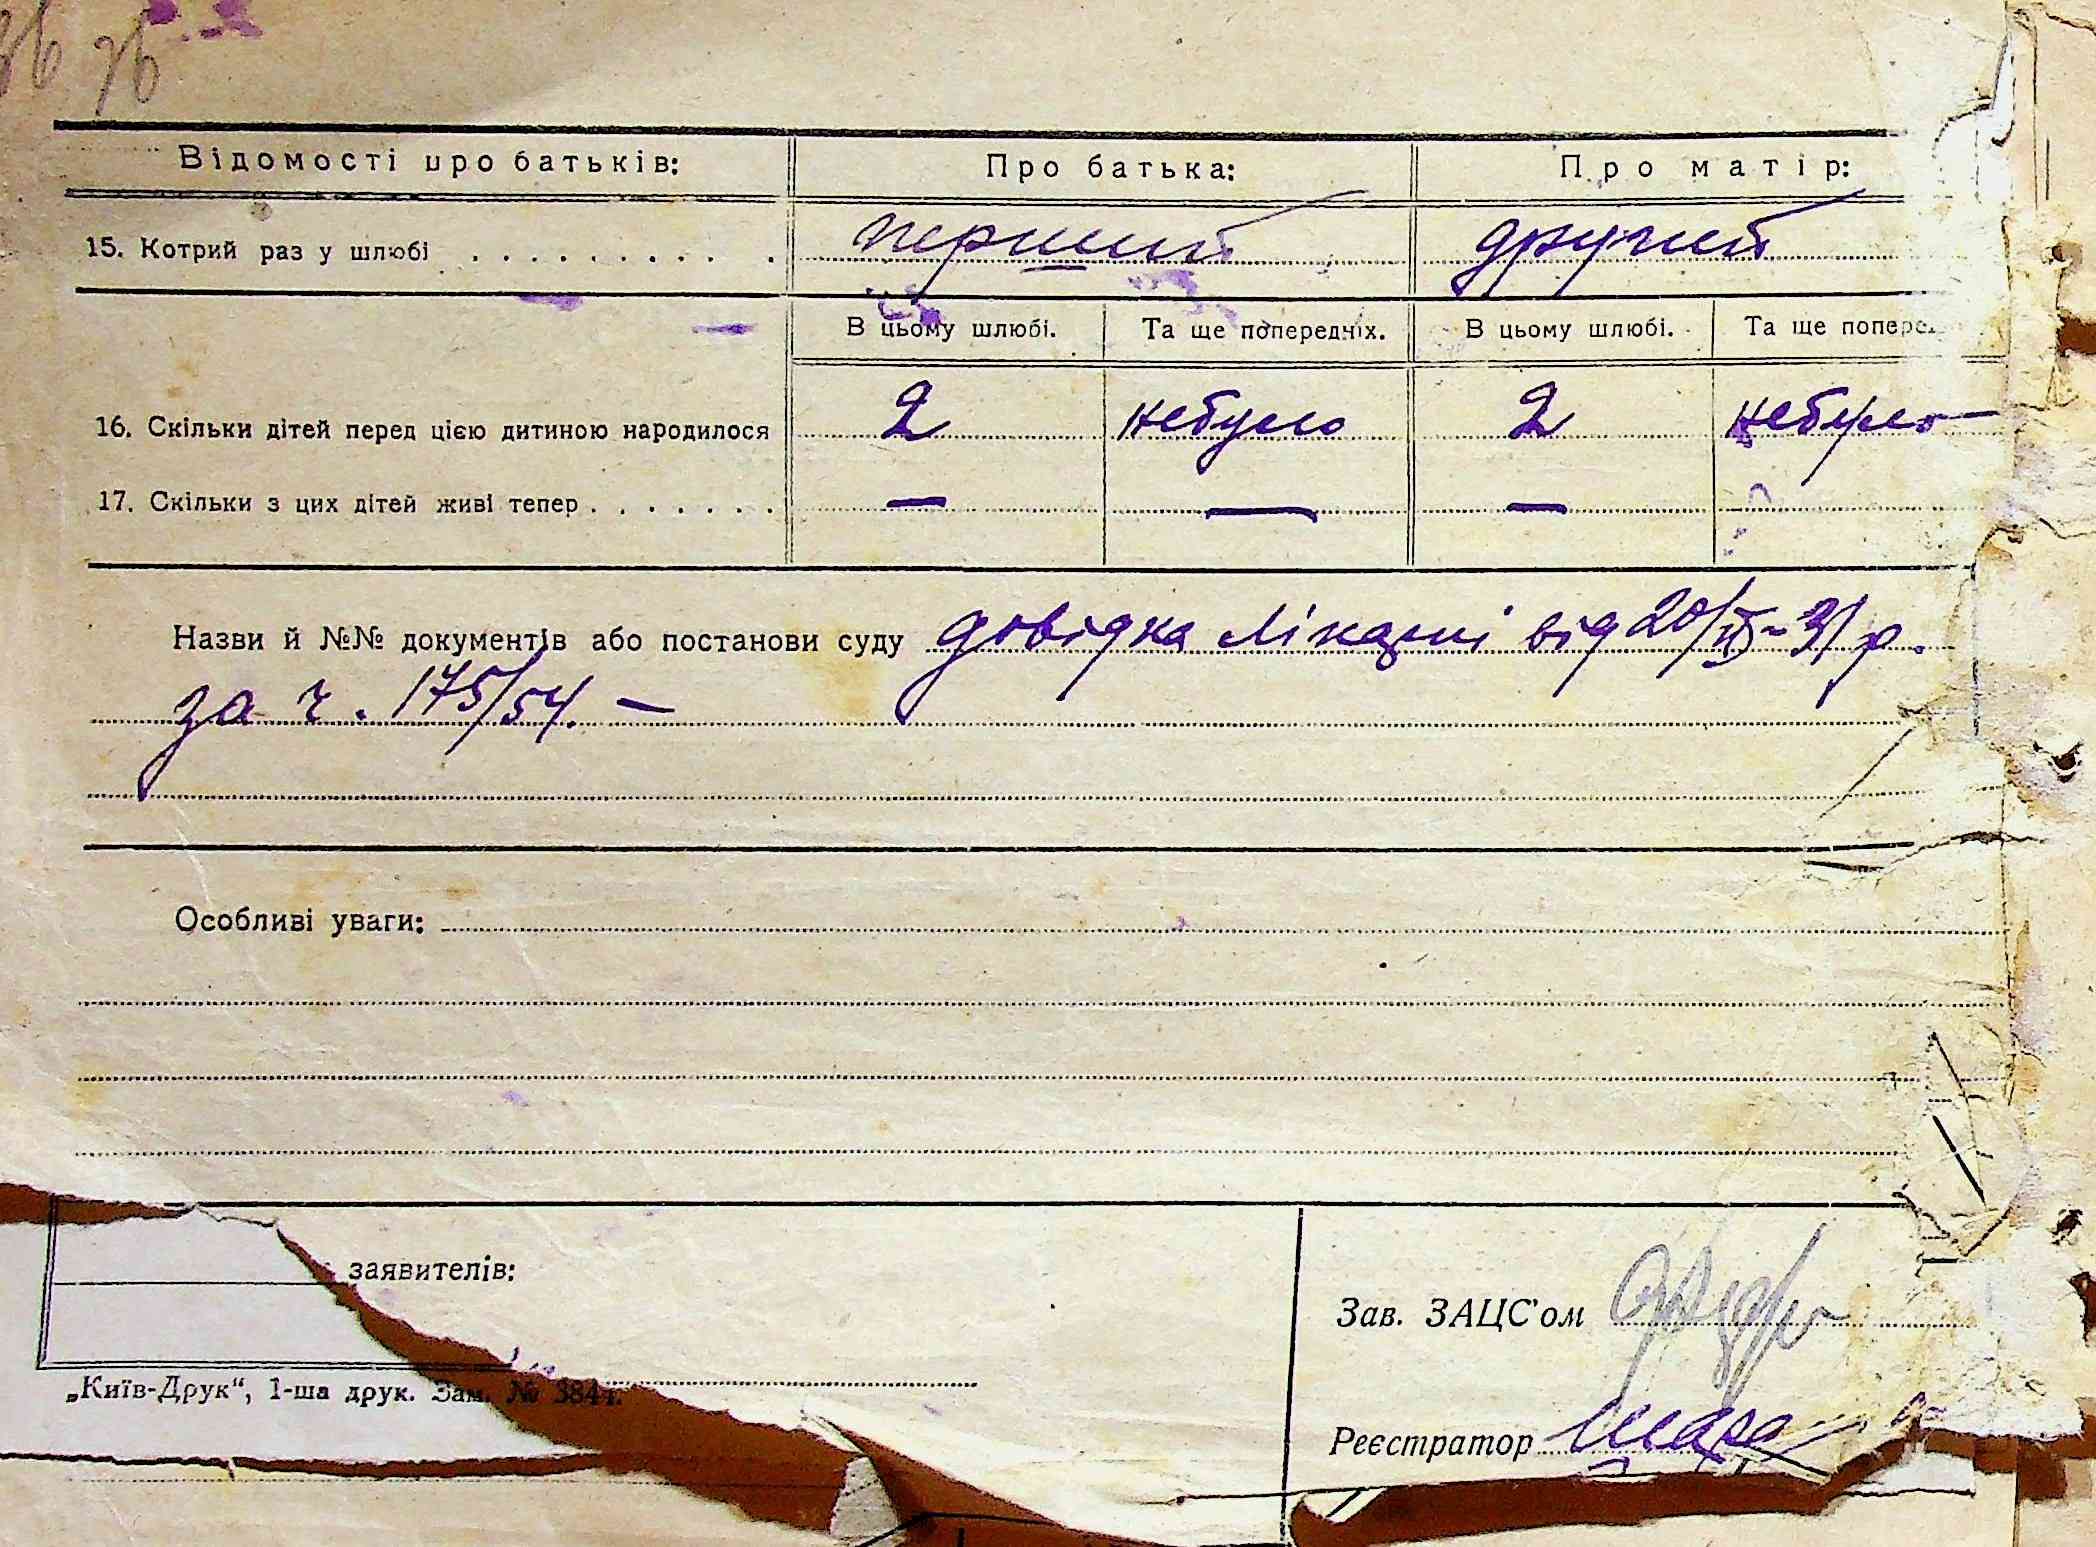 76
Відомості про батьків: Про батька: Про матір:
15. Котрий раз у шлюбі . . . . . . . . . . перший другий
В цьому шлюбі. Та ще попередніх. В цьому шлюбі. Та ще попере
16. Скільки дітей перед цією дитиною народилося 2 небуло 2 небуло
17. Скільки з цих дітей живі тепер . . . . . . . — — —
Назви й №№ документів або постанови суду довідка лікарні від 20/IX-31 р.
за ч. 175/54. —
Особливі уваги:
заявителів:
Зав. ЗАЦС'ом
„Київ-Друк“, 1-ша друк. Зам. № 3844.
Реєстратор